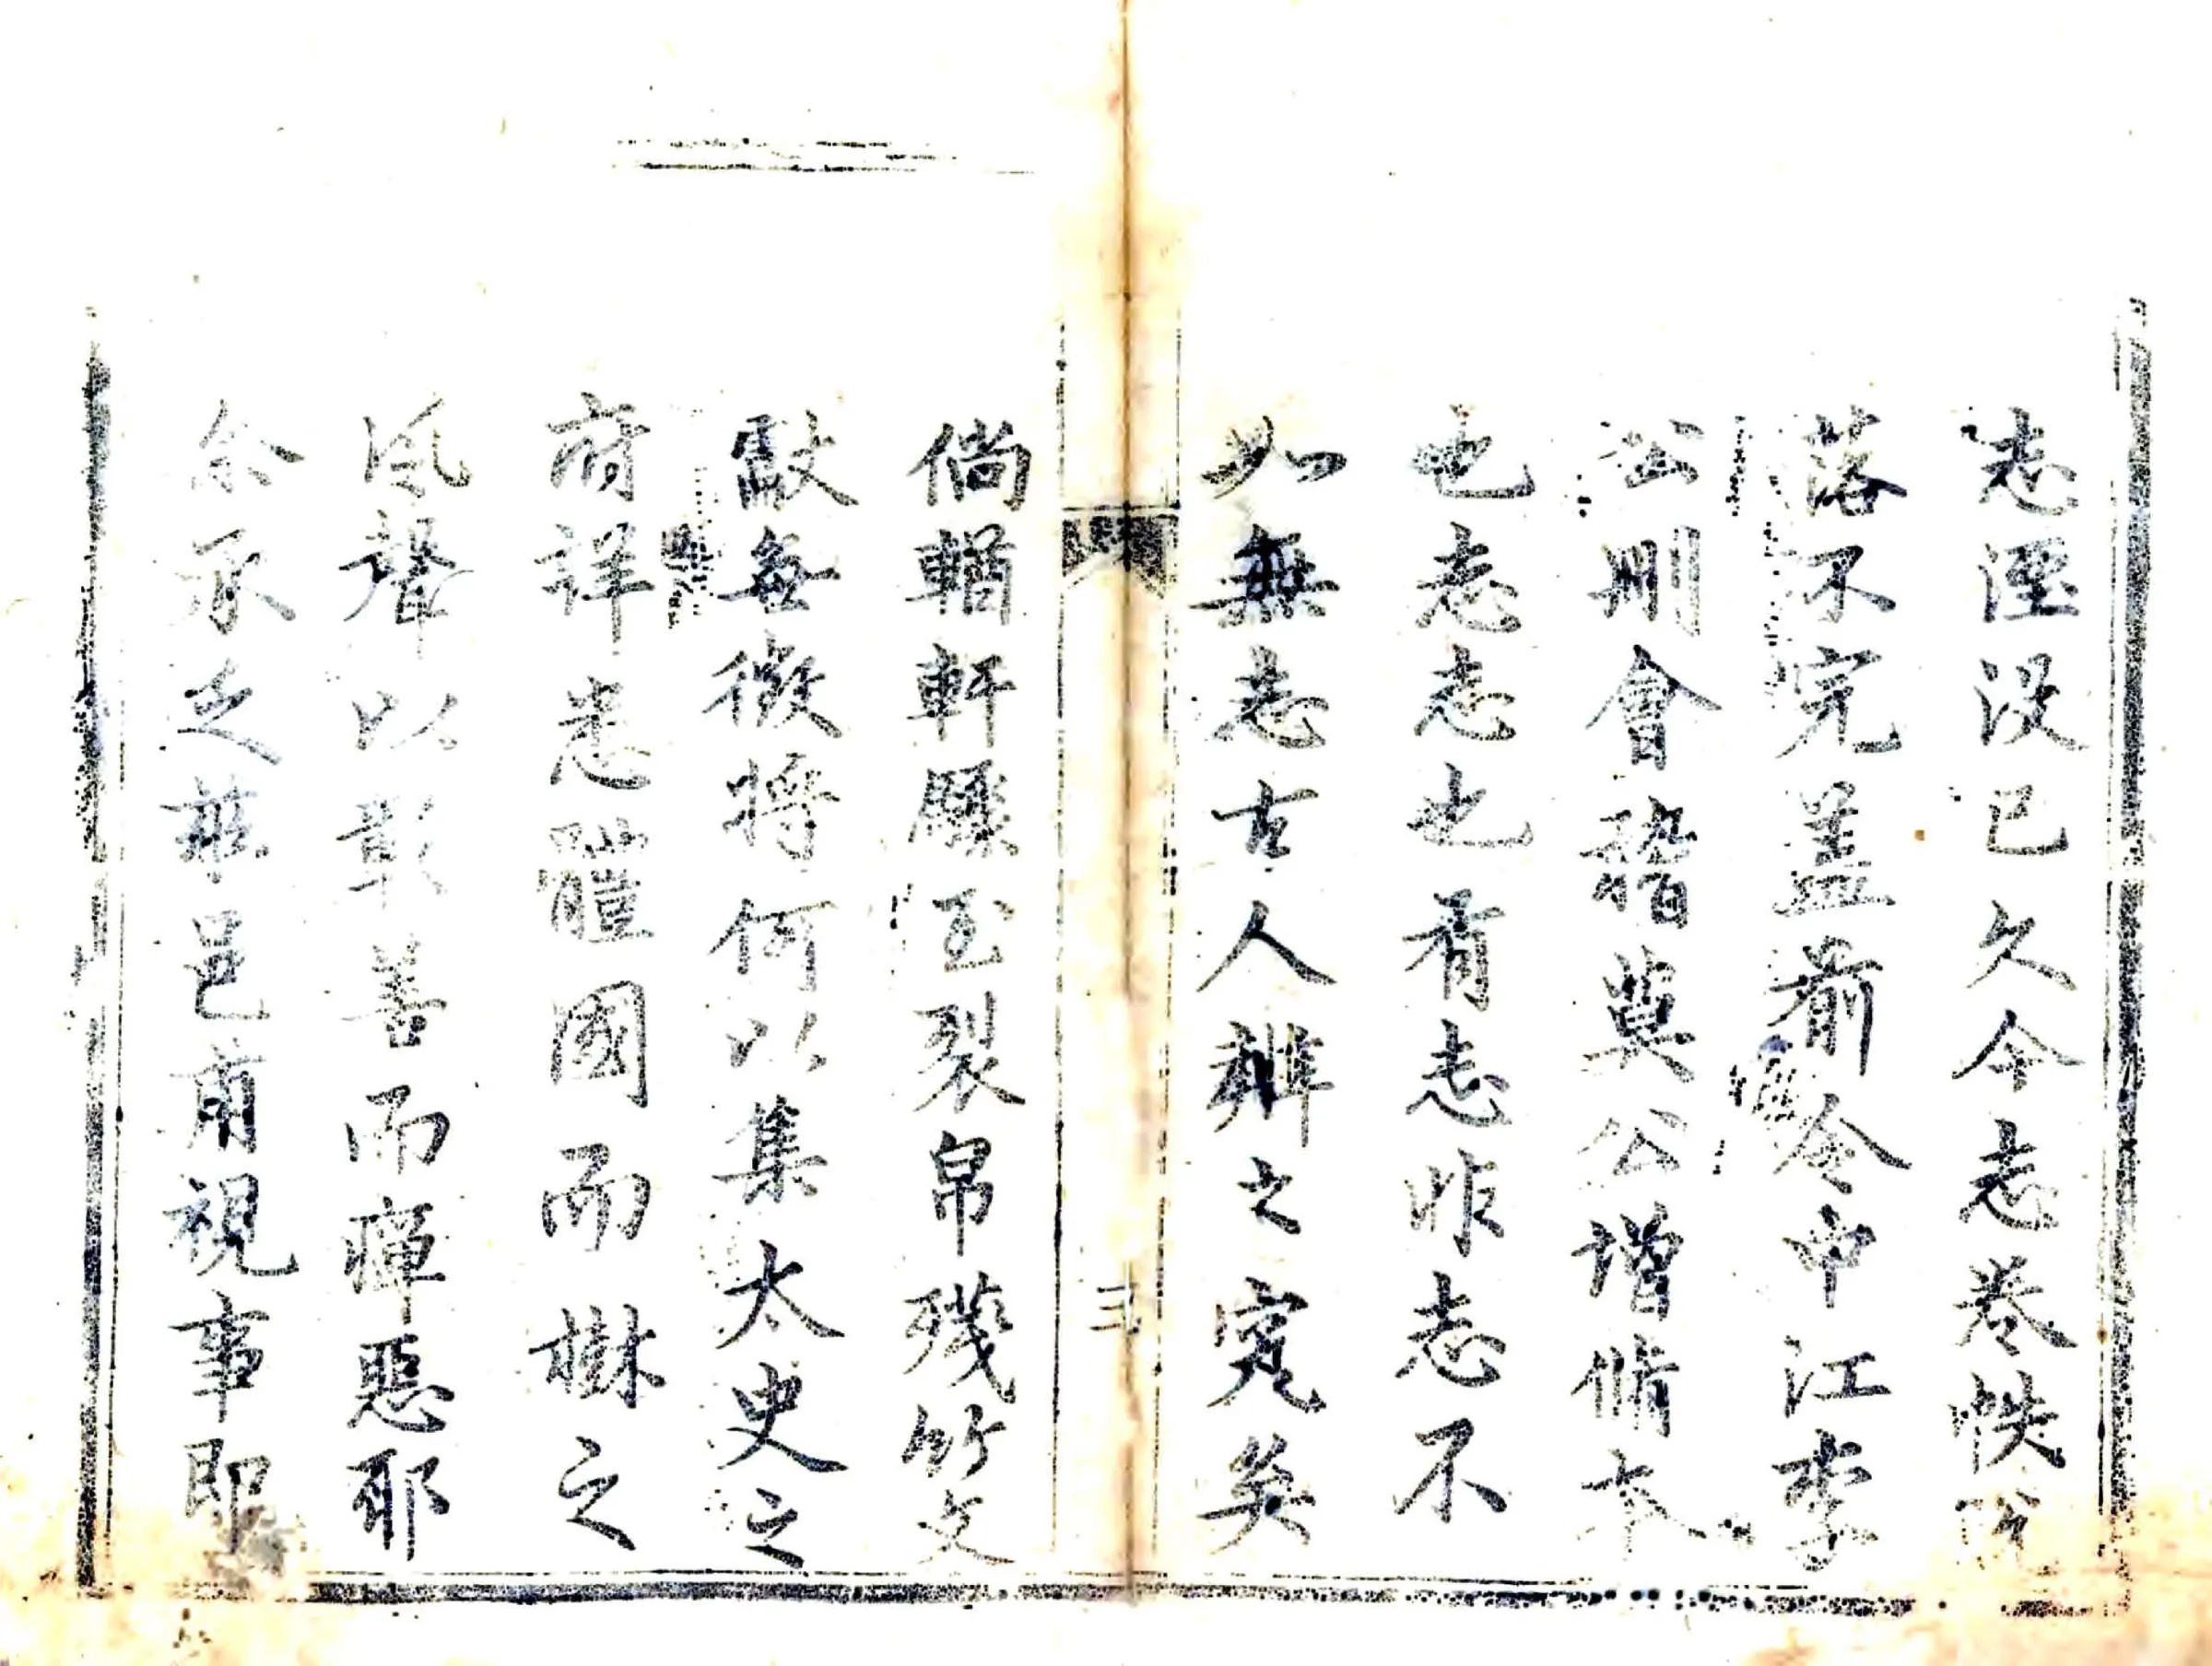 志湮没已久今志卷帙脫
落不完盖前令中江李
公删會稽莫公增脩本
也志志也有志昨志不
如無志古人辨之寃矣
三
倘輶軒驟至裂帛殘竹文
獻無徵将何以集太史之
府詳悉體國而樹之
風聲以彰善而癉惡耶
余承乏茲邑甫視事即